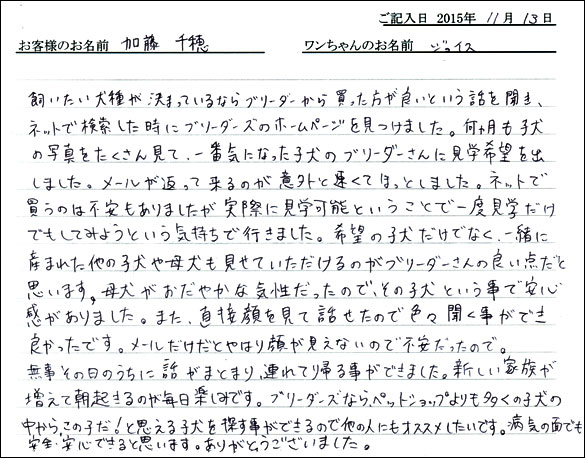 ご記入日 2015年 11月 13日
お客様のお名前 加藤 千穂 ワンちゃんのお名前 ジョイス
飼いたい犬種が決まっているならブリーダーから買った方が良いという話を聞き、
ネットで検索した時にブリーダーズのホームページを見つけました。何ヶ月も子犬
の写真をたくさん見て、一番気になった子犬のブリーダーさんに見学希望を出
しました。メールが返って来るのが意外と速くてほっとしました。ネットで
買うのは不安もありましたが実際に見学可能ということで一度見学だけ
でもしてみようという気持ちで行きました。希望の子犬だけでなく、一緒に
産まれた他の子犬や母犬も見せていただけるのがブリーダーさんの良い点だと
思います。母犬がおだやかな気性だったので、その子犬という事で安心
感がありました。また、直接顔を見て話せたので色々聞く事ができ
良かったです。メールだけだとやはり顔が見えないので不安だったので。
無事その日のうちに話がまとまり、連れて帰る事ができました。新しい家族が
増えて朝起きるのが毎日楽しみです。ブリーダーズなら、ペットショップよりも多くの子犬の
中から、この子だ!と思える子犬を探す事ができるので他の人にもオススメしたいです。病気の面でも
安全・安心できると思います。ありがとうございました。